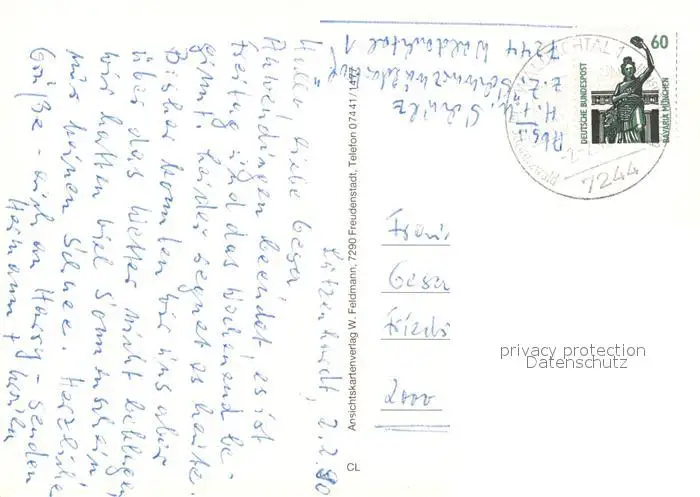 Lützenhardt, 2.2.90
Hallo liebe Geser
Anwendungen beendet, es ist
Freitag und das Wochenend be-
ginnt. Leider regnet es heute.
Bisher konnten wir uns aber
über das Wetter nicht beklagen,
wir hatten viel Sonnenschein
nur keinen Schnee. Herzliche
Grüße - auch an Harry - senden
Hermann +
Abs.: H. + L. Schulz
z. Z. Schwarzwald
7244 Waldachtal 1
Ansichtskartenverlag W. Feldmann, 7290 Freudenstadt, Telefon 07441/1477
CL
WALDACHTAL 1
7244
60
DEUTSCHE BUNDESPOST
BAVARIA MÜNCHEN
Geser
2000
privacy protection
Datenschutz